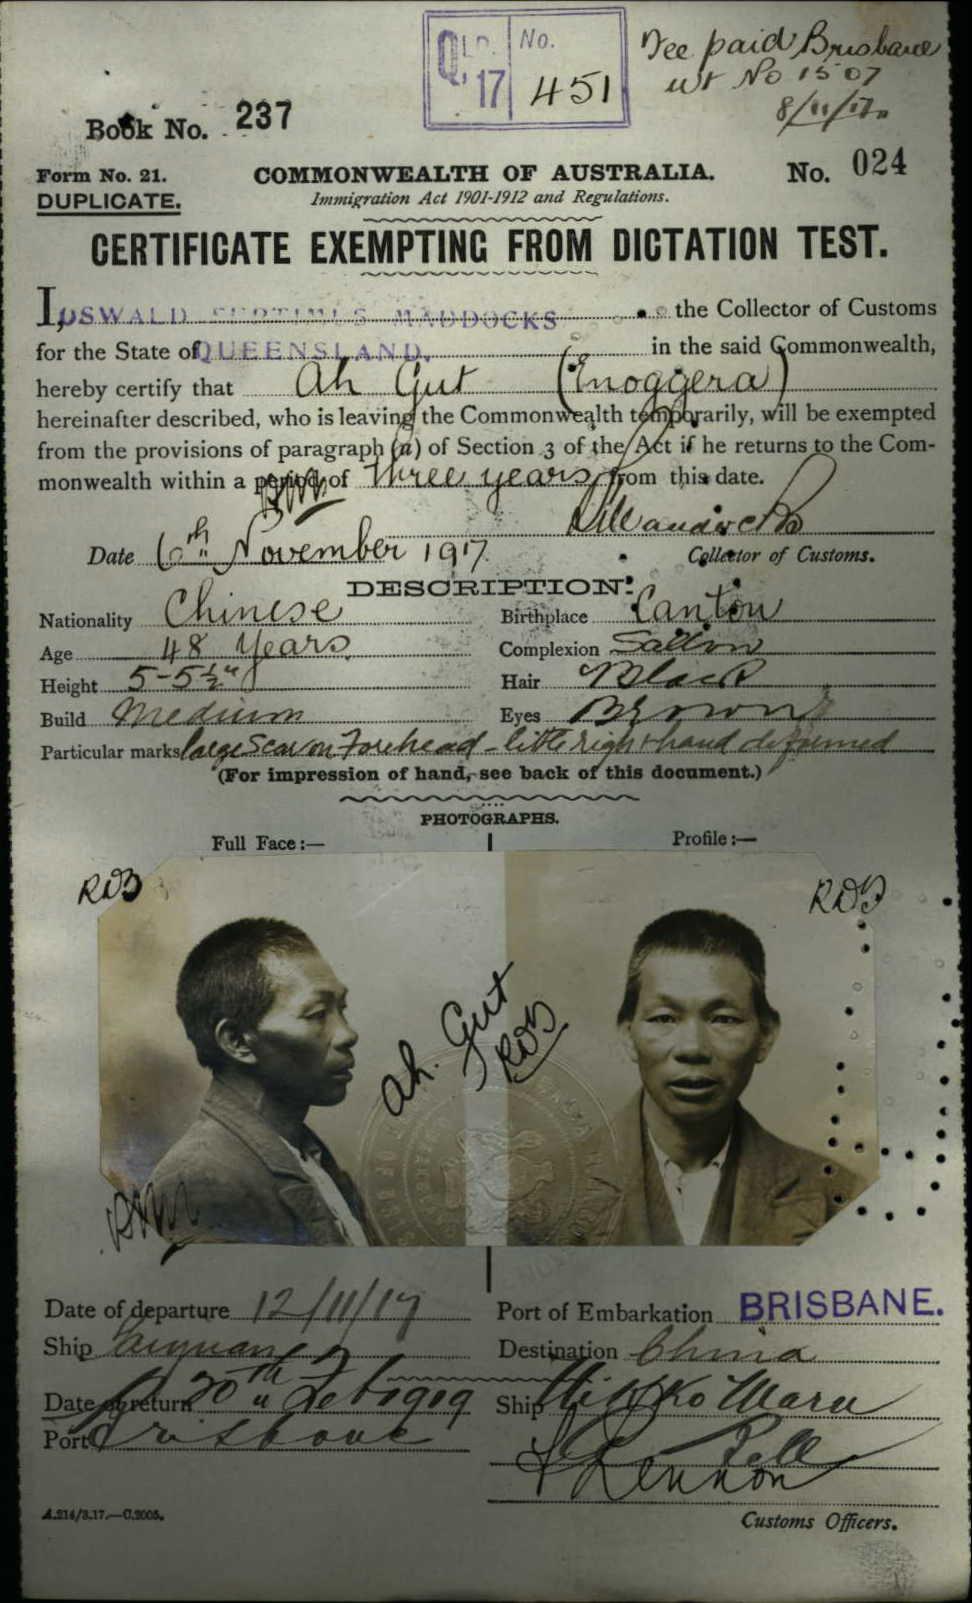 QLD. 17 No. 451
Fee paid Brisbane
No 1507
8/11/17
Book No. 237
Form No. 21.
COMMONWEALTH OF AUSTRALIA.
No. 024
DUPLICATE.
Immigration Act 1901-1912 and Regulations.
CERTIFICATE EXEMPTING FROM DICTATION TEST.
I, OSWALD SEPTIMUS MADDOCKS the Collector of Customs
for the State of QUEENSLAND. in the said Commonwealth,
hereby certify that Ah Gut (Enoggera)
hereinafter described, who is leaving the Commonwealth temporarily, will be exempted
from the provisions of paragraph (a) of Section 3 of the Act if he returns to the Com-
monwealth within a period of three years from this date.
Date 6th November 1917.
Collector of Customs.
DESCRIPTION:
Nationality Chinese
Birthplace Canton
Age 48 Years
Complexion Sallow
Height 5-5½"
Hair Black
Build Medium
Eyes Brown
Particular marks large Scar on Forehead - little right hand deformed
(For impression of hand, see back of this document.)
PHOTOGRAPHS.
Full Face:—
Profile:—
RDB
RDB
Ah. Gut
RDB
Date of departure 12/11/17
Port of Embarkation BRISBANE.
Ship Taiyuan
Destination China
Date of return 20th Feb 1919
Ship Nikko Maru
Port Brisbane
Customs Officers.
A.214/3.17.—C.2005.